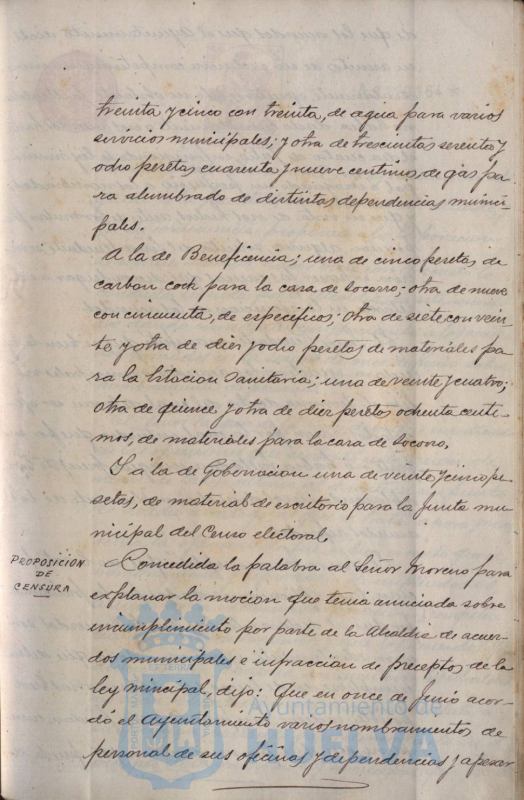 treinta y cinco con treinta, de agua para varios
servicios municipales; y otra de trescientas sesenta y
ocho pesetas cuarenta y nueve centimos de gas pa
ra alumbrado de distintas dependencias munici-
pales.
A la de Beneficencia; una de cinco pesetas de
carbon cock para la casa de Socorro; otra de nueve
con cincuenta, de especificos; otra de siete con vein
te y otra de diez y ocho pesetas de materiales pa
ra la Estacion Sanitaria; una de veinte y cuatro;
otra de quince y otra de diez pesetas ochenta centi-
mos, de materiales para la casa de Socorro.
Y á la de Gobernacion una de veinte y cinco pe
setas, de material de escritorio para la Junta mu
nicipal del Censo electoral.
PROPOSICION
DE
CENSURA
Concedida la palabra al Señor Moreno para
explanar la mocion que tenia anuciada sobre
incumplimiento por parte de la Alcaldia de acuer-
dos municipales e infraccion de preceptos de la
ley mincipal, dijo: Que en once de Junio acor-
dó el Ayuntamiento varios nombramientos de
personal de sus oficinas y dependencias y apesar
Ayuntamiento de
HUELVA